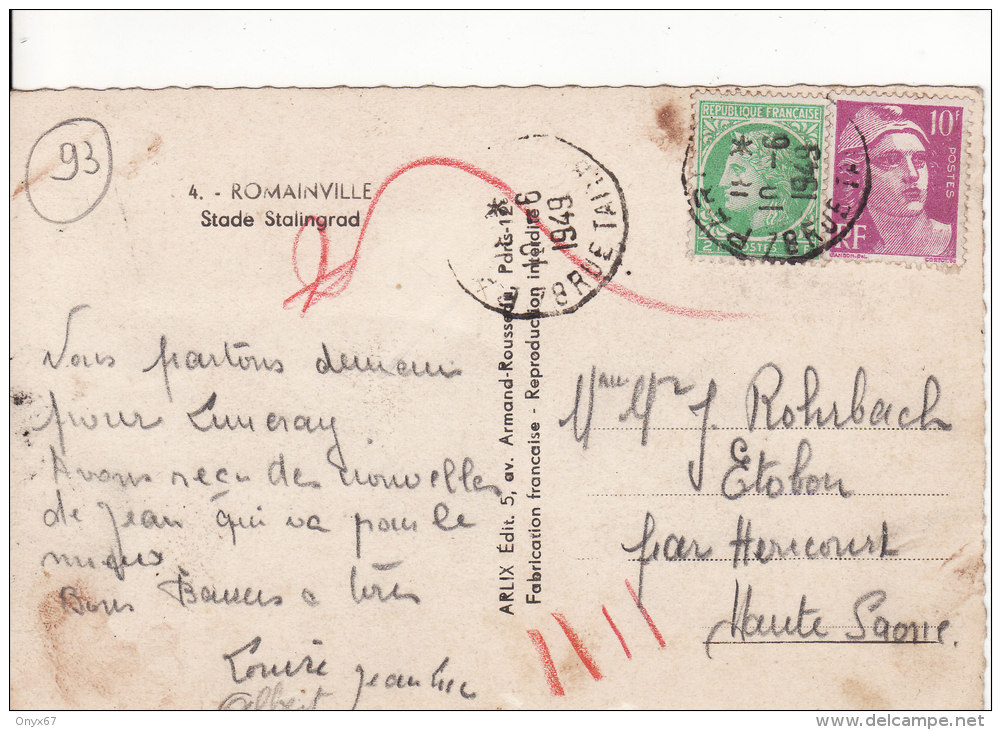 93
4. - ROMAINVILLE
Stade Stalingrad
Nous partons demain
pour Luneray
Avons reçu des nouvelles
de Jean qui va pour le
mieux
Bons Baisers a tous
Louise Jean Luc
Albert
ARLIX Édit. 5, av. Armand-Rousseau, Paris-12e
Fabrication francaise - Reproduction interdite
1949
8 RUE TAI
REPUBLIQUE FRANÇAISE
2F POSTES
1949
78 RUE TA
10F
POSTES
RF
GANDON
Mme Mr J. Rohrbach
Etobon
par Hericourt
Haute Saone.
Onyx67
delcampe.net